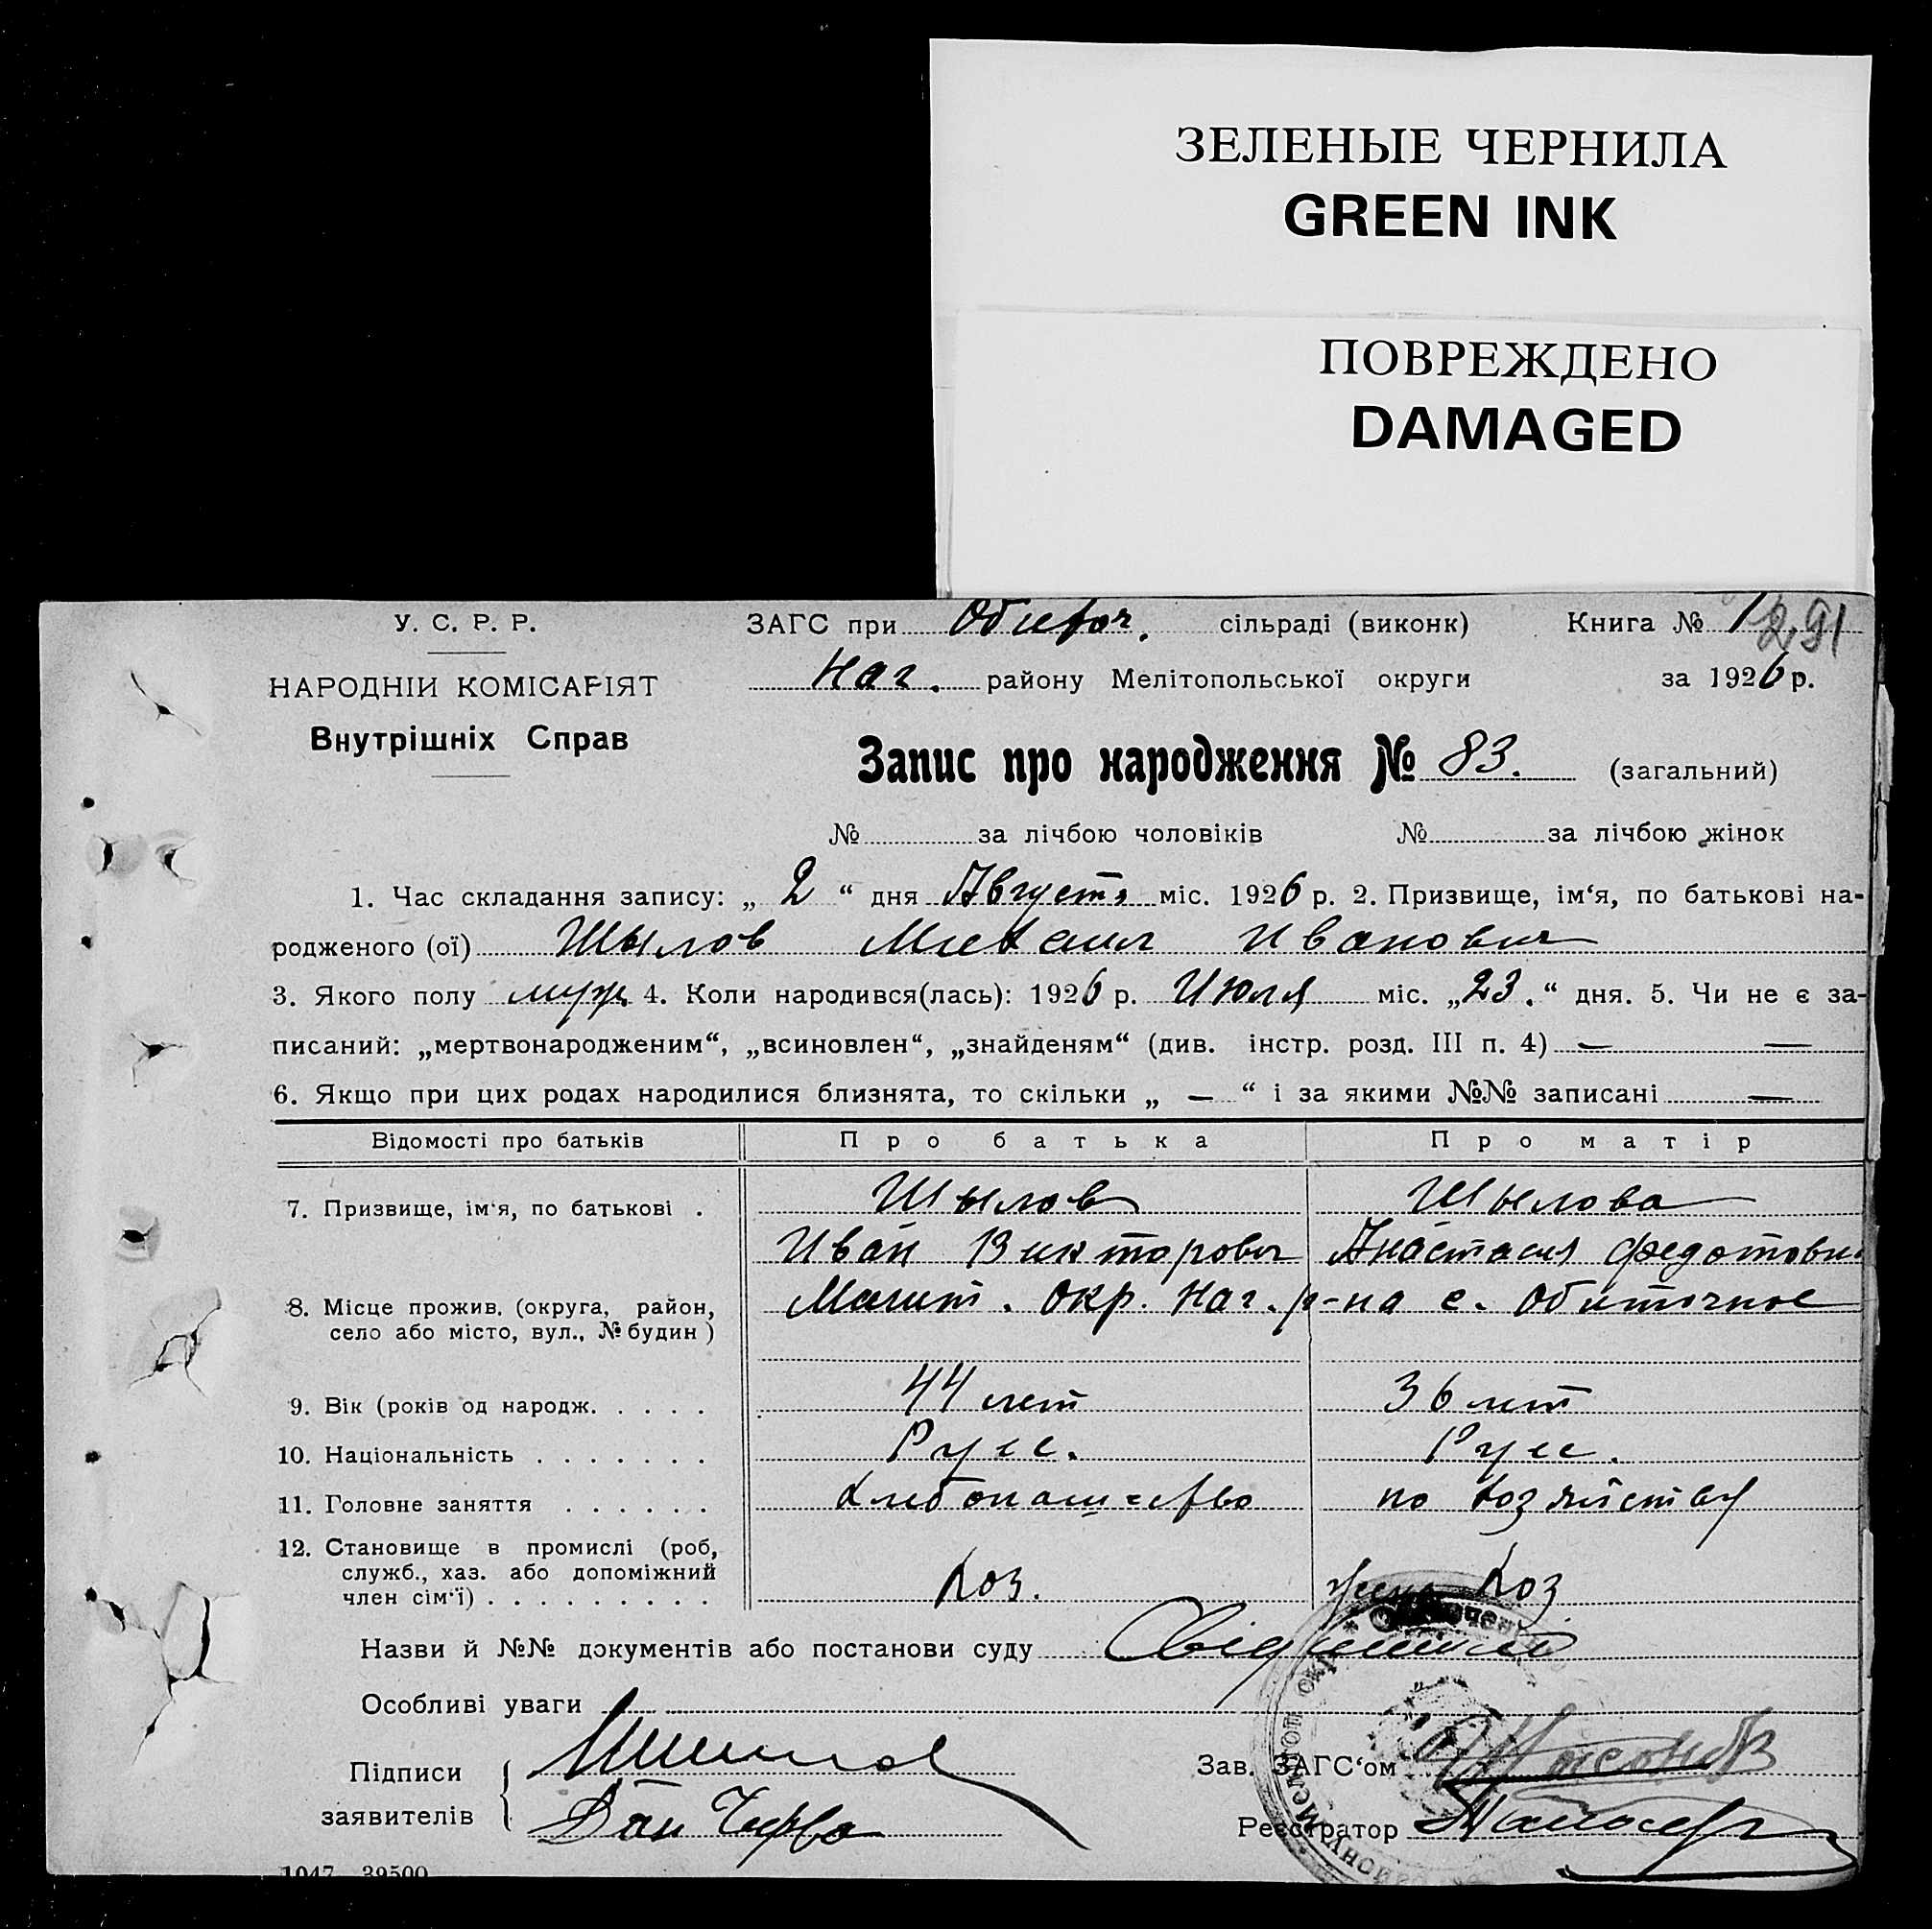 ЗЕЛЕНЫЕ ЧЕРНИЛА
GREEN INK
ПОВРЕЖДЕНО
DAMAGED
У. С. Р. Р.
НАРОДНІЙ КОМІСАРІЯТ
Внутрішніх Справ
ЗАГС при Обиточ. сільраді (виконк) Книга № 1 291
Наг. району Мелітопольської округи за 1926 р.
Запис про народження № 83. (загальний)
№ за лічбою чоловіків № за лічбою жінок
1. Час складання запису: „ 2 “ дня Августа міс. 1926 р. 2. Призвище, ім‘я, по батькові на-
родженого (ої) Шылов Михаил Иванович
3. Якого полу муж. 4. Коли народився(лась): 1926 р. Июля міс. „23.“ дня. 5. Чи не є за-
писаний: „мертвонародженим“, „всиновлен“, „знайденям“ (див. інстр. розд. III п. 4) — —
6. Якщо при цих родах народилися близнята, то скільки „ — “ і за якими №№ записані —
Відомості про батьків Про батька Про матір
7. Призвище, ім‘я, по батькові . Шылов Шылова
Иван Викторович Анастасия Федотовн
8. Місце прожив. (округа, район, Мелит. окр. Наг. р-на с. Обиточное
село або місто, вул., № будин)
9. Вік (років од народж. . . . . 44 лет 36 лет
10. Національність . . . . . . . Русс. Русс.
11. Головне заняття . . . . . . Хлебопашество по хозяйству
12. Становище в промислі (роб,
служб., хаз. або допоміжний Хоз. жена Хоз
член сім‘ї) . . . . . . . . .
Назви й №№ документів або постанови суду
Особливі уваги —
Підписи
заявителів
Зав. ЗАГС‘ом
Реєстратор
1047 39500